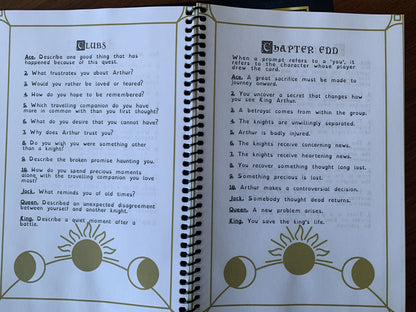 Clubs
Ace. Describe one good thing that has
happened because of this quest.
2. What frustrates you about Arthur?
3. Would you rather be loved or feared?
4. How do you hope to be remembered?
5. Which travelling companion do you have
more in common with than you first thought?
6. What do you desire that you cannot have?
7. Why does Arthur trust you?
8. Do you wish you were something other
than a knight?
9. Describe the broken promise haunting you.
10. How do you spend precious moments
along with the travelling companion you love
most?
Jack. What reminds you of old times?
Queen. Described an unexpected disagreement
between yourself and another knight.
King. Describe a quiet moment after a
battle.
Chapter End
When a prompt refers to a "you", it
refers to the character whose player
drew the card.
Ace. A great sacrifice must be made to
journey onward.
2. You uncover a secret that changes how
you see King Arthur.
3. A betrayal comes from within the group.
4. The knights are unwillingly separated.
5. Arthur is badly injured.
6. The knights receive concerning news.
7. The knights receive heartening news.
8. You recover something thought long lost.
9. Something precious is lost.
10. Arthur makes a controversial decision.
Jack. Somebody thought dead returns.
Queen. A new problem arises.
King. You save the king's life.